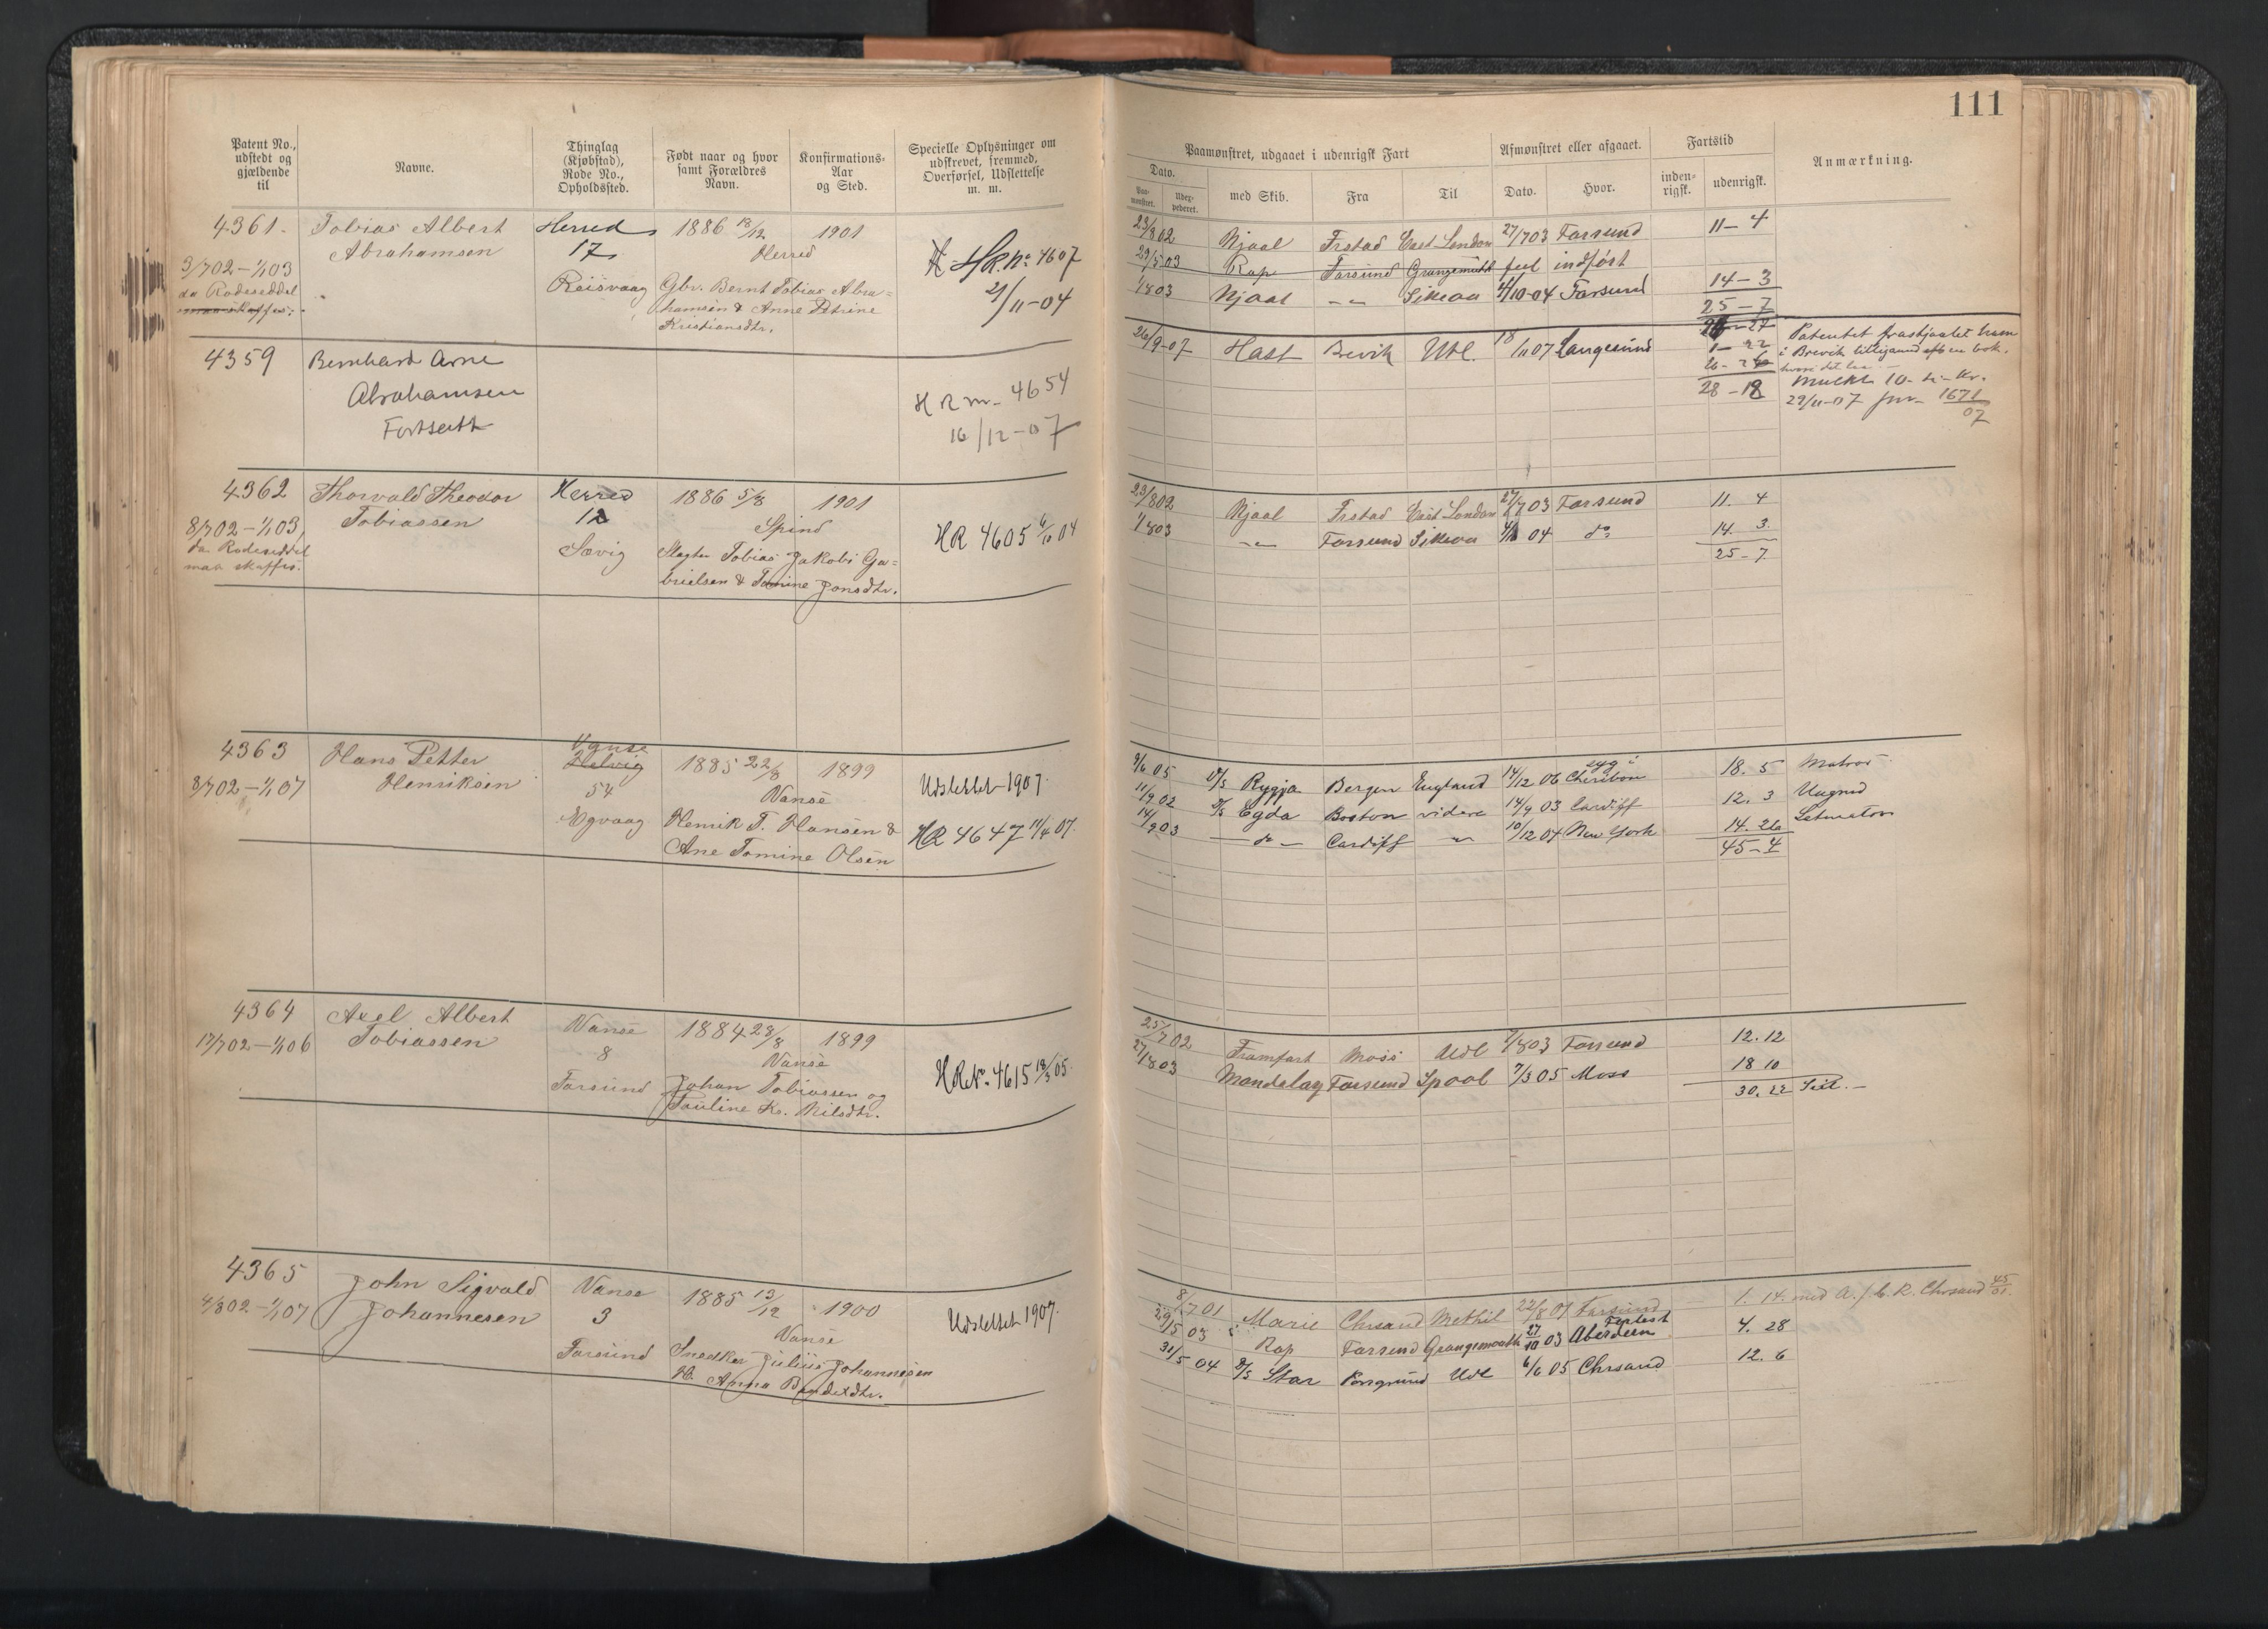 111
Patent No., udstedt og gjældende til
Navne.
Thinglag (Kjøbstad), Rode No., Opholdssted.
Født naar og hvor samt Forældres Navn.
Konfirmations-Aar og Sted.
Specielle Oplysninger om udskrevet, fremmed, Overførsel, Udslettelse m. m.
Paamønstret, udgaaet i udenrigsk Fart
Dato.
Paa-mønstret.
Udex-pederet.
med Skib.
Fra
Til
Afmønstret eller afgaaet.
Dato.
Hvor.
Fartstid
inden-rigsk.
udenrigsk.
Anmærkning.
4361.
3/7 02 – 1/1 03
da Rodeseddel
maa skaffes.
Tobias Albert
Abrahamsen
Herred
17
Reisvaag
1886 18/12
Herred
1901
Gbr. Bernt Tobias Abra=
hamsen & Anne Petrine
Kristiansdtr.
HR. No. 4607
21/11-04
23/8 02 Njaal Frstad East London 27/7 03 Farsund 11 – 4
29/5 03 Rap Farsund Grangemouth feil indført
1/8 03 Njaal – " – Sikeaa 4/10-04 Farsund 14 – 3
25 – 7
4359
Bernhard Arne
Abrahamsen
Fortsatt
HR nr. 4654
16/12-07
26/9-07 Hast Brevik Udl. 18/11 07 Langesund 1 – 22
28 – 18
Patentet frastjaalet ham
i Brevik tilligemed en bok,
hvori det laa.
Mulkt 10 – ti – Kr.
29/11-07 jnr. 1671/07
4362
8/7 02 – 1/1 03,
da Rodeseddel
maa skaffes.
Thorvald Theodor
Tobiassen
Herred
12
Sævig
1886 5/8
Spind
1901
Slagter Tobias Jakobs Ga=
brielsen & Tomine Jonsdtr.
HR 4605 6/10 04
23/8 02 Njaal Frstad East London 27/7 03 Farsund 11. 4
1/8 03 – " – Farsund Sikeaa 4/10 04 do 14. 3.
25 – 7
4363
8/7 02 – 1/1 07
Hans Petter
Henriksen
Vanse
Helvig
54
Egvaag
1885 22/8
Vanse
1899
Henrik T. Hansen &
Ane Tomine Olsen
Udslettet 1907.
HR 4647 11/4 07.
9/6 05 D/S Rygja Bergen England 14/12 06 syg i Cheribon 18. 5 Matros
11/9 02 D/S Egda Boston videre 14/9 03 Cardiff 12. 3 Ungmd
14/9 03 – do – Cardiff " 10/12 04 New York 14. 26 Letmatros
45 – 4
4364
17/7 02 – 1/1 06
Axel Albert
Tobiassen
Vanse
8
Farsund
1884 23/8
Vanse
1899
Johan Tobiassen og
Pauline Kr. Nilsdtr.
HR No. 4615 18/3 05.
25/7 02 Framfart Moss Udl 7/8 03 Farsund 12. 12
27/8 03 Mandalag Farsund Spool 7/3 05 Moss 18 10
30. 22
4365
4/8 02 – 1/1 07
John Sigvald
Johannesen
Vanse
3
Farsund
1885 13/12
Vanse
1900
Snedker Julius Johannesen
& Anna Bendixdtr.
Udslettet 1907.
8/7 01 Marie Chrsand Methil 22/8 01 Farsund 1. 14. med A. f. C. R. Chrsand 45/01.
29/5 03 Rap Farsund Grangemouth 27/10 03 Aberdeen Forlist 4. 28
31/5 04 D/S Star Porsgrund Udl 6/6 05 Chrsand 12. 6